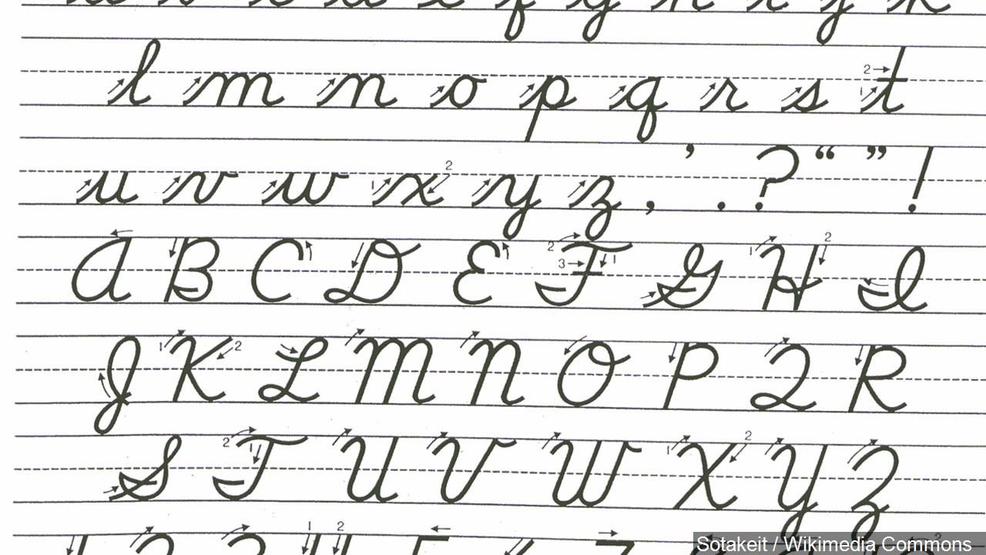 l m n o p q r s t
u v w x y z , ’ . ? “ ” !
A B C D E F G H I
J K L M N O P Q R
S T U V W X Y Z
Sotakeit / Wikimedia Commons